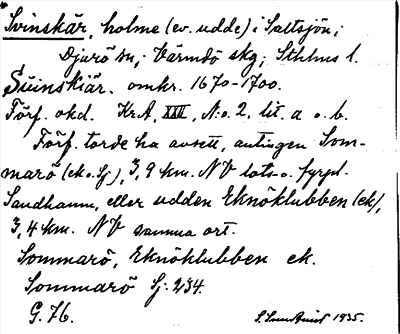 Svinskär, holme (ev. udde) i Saltsjön,
Djurö sn, Värmdö skg, Sthlms l.
Suinskiär. omkr. 1670-1700.
Förf. okd. KrA, XXII, N:o 2, lit. a o. b.
Förf. torde ha avsett, antingen Som-
marö (ek o. Sj), 3,9 km. NV lots- o. fyrpl.
Sandhamn, eller udden Eknöklubben (ek),
3,4 km. NV samma ort.
Sommarö, Eknöklubben ek.
Sommarö Sj: 234.
G. 76.
1935.